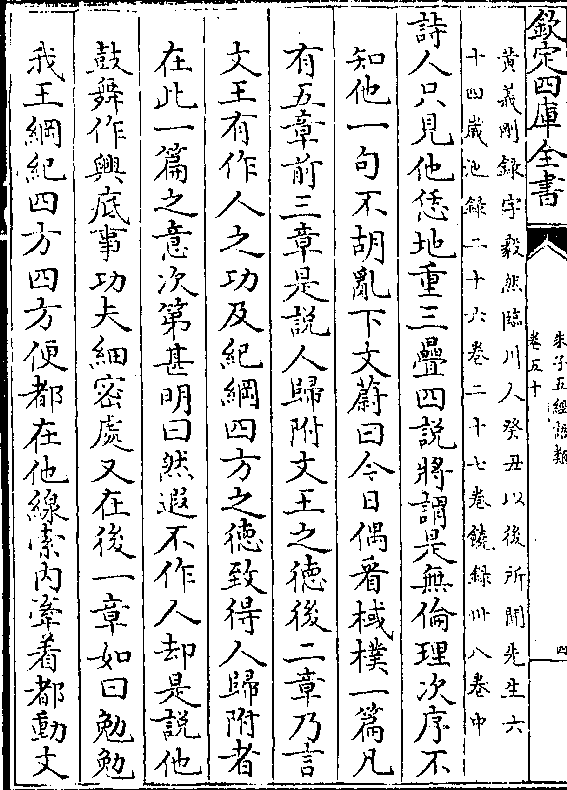 欽定四庫全書
朱子五經語類
卷五十
四
黃義剛錄字毅然臨川人癸丑以後所聞先生六
十四歲池錄二十六卷二十七卷饒錄卅八卷中
詩人只見他恁地重三疊四説將謂是無倫理次序不
知他一句不胡亂下文蔚曰今日偶看棫樸一篇凡
有五章前三章是説人歸附文王之徳後二章乃言
文王有作人之功及紀綱四方之徳致得人歸附者
在此一篇之意次第甚明曰然遐不作人却是説他
鼓舞作興底事功夫細密處又在後一章如曰勉勉
我王綱紀四方四方便都在他線索内牽着都動文